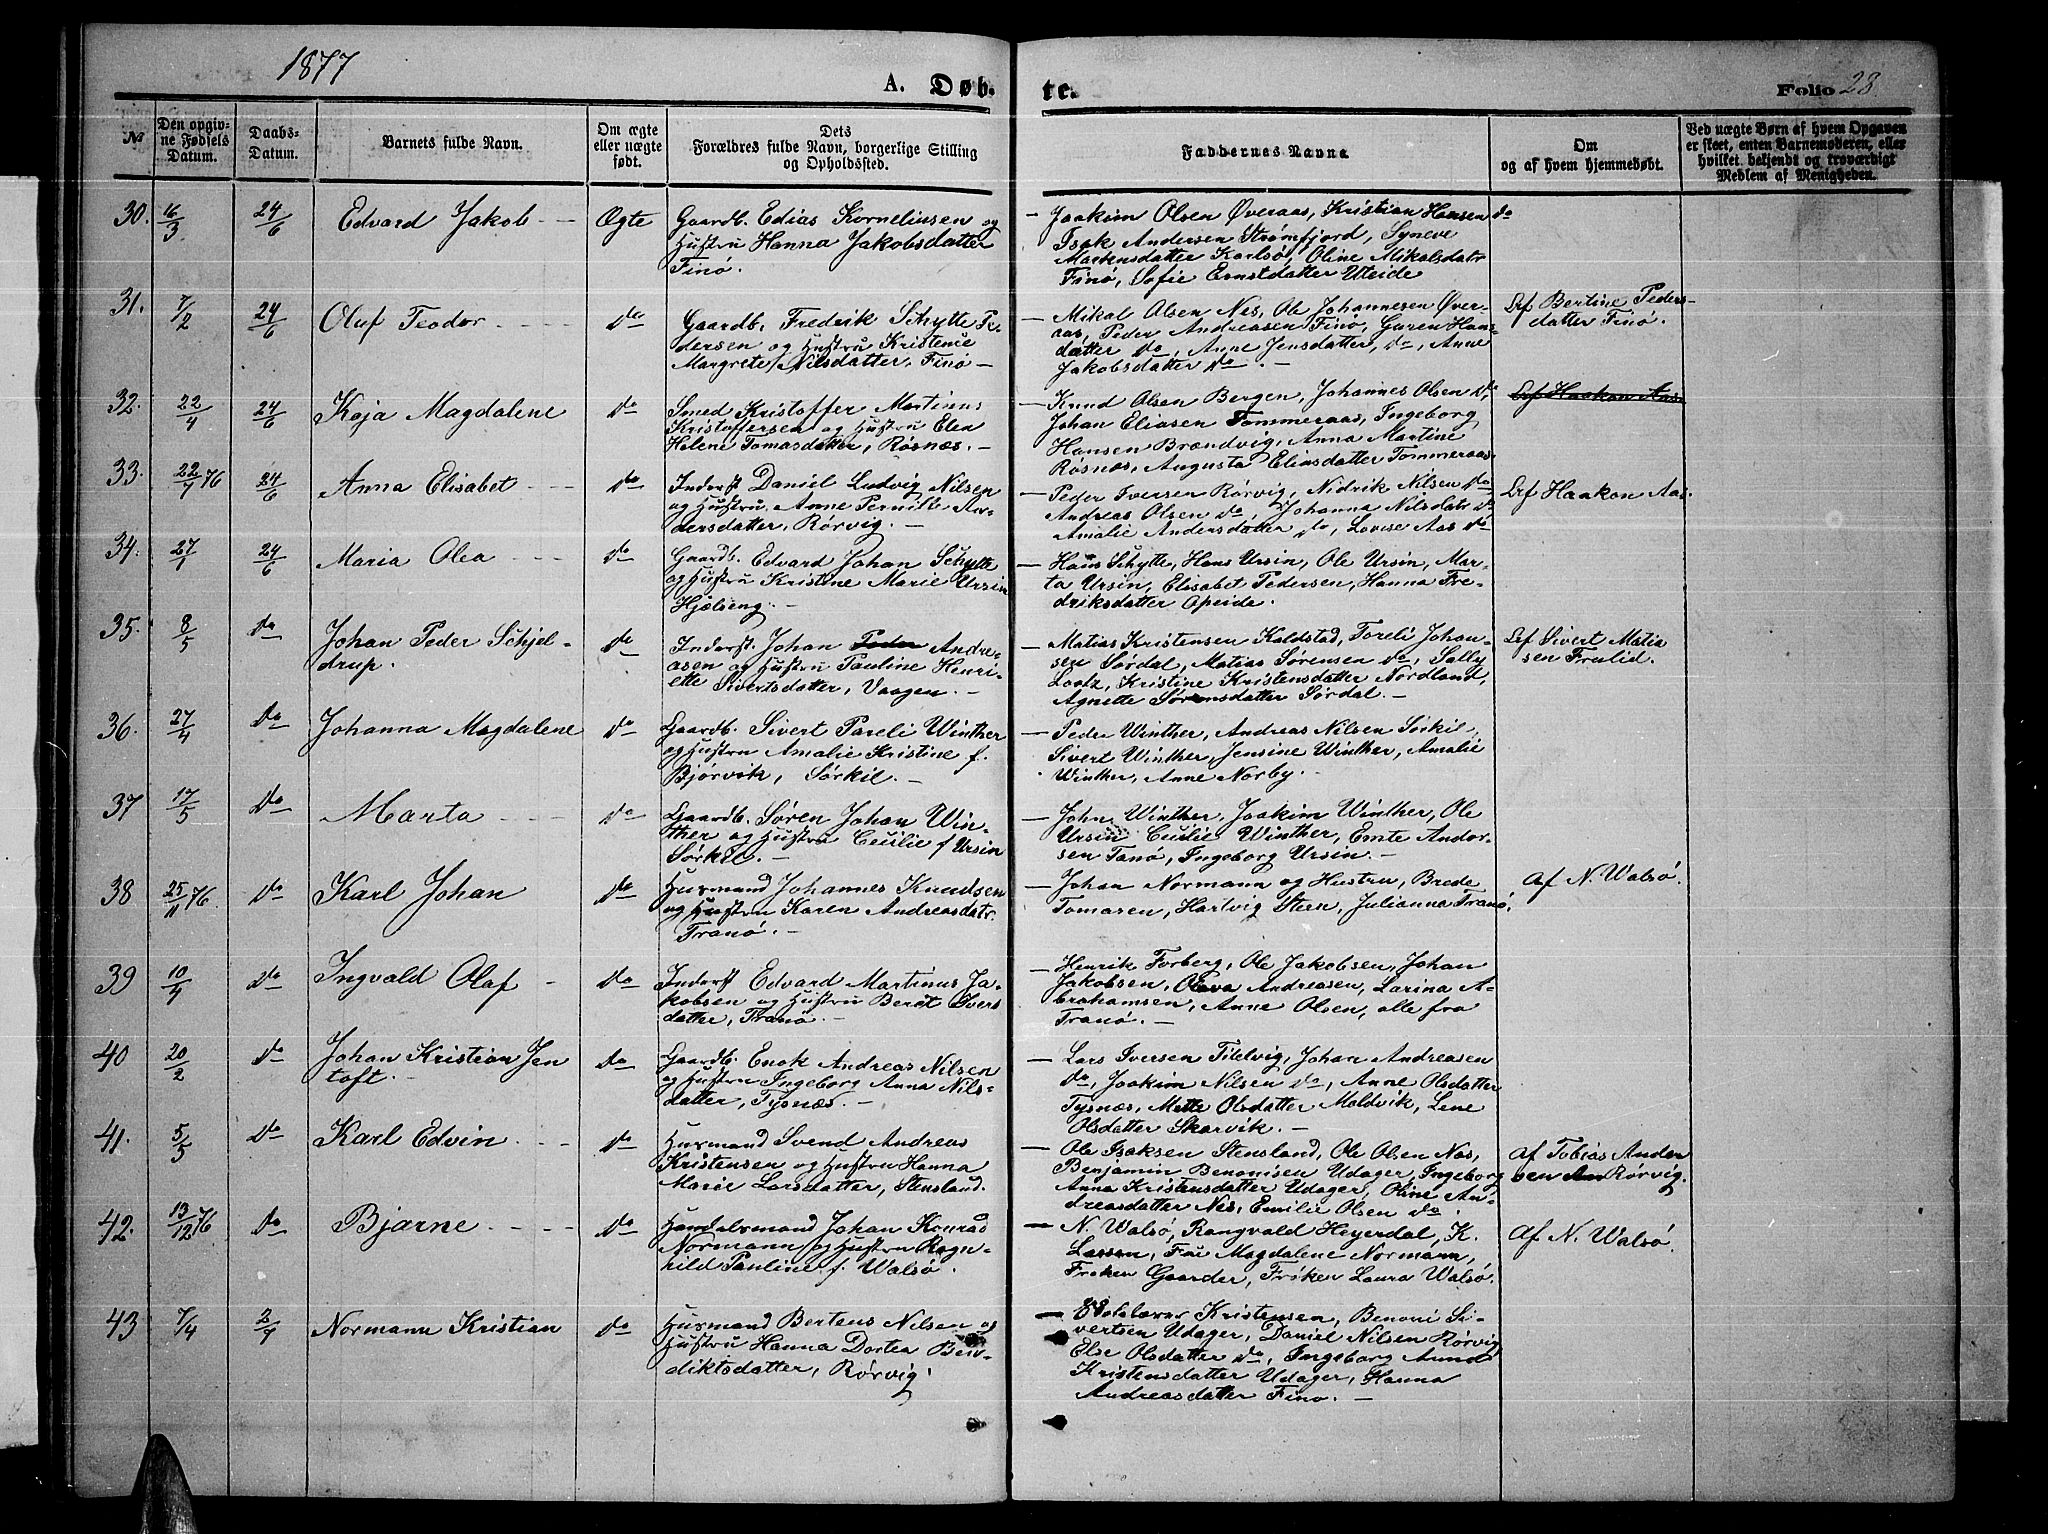 1877
A. Døb.
te.
Folio 28.
№
Den opgiv-
ne Fødsels
Datum.
Daabs-
Datum.
Barnets fulde Navn.
Om ægte
eller uægte
født.
Dets
Forældres fulde Navn, borgerlige Stilling
og Opholdssted.
Faddernes Navne
Om
og af hvem hjemmedøbt.
Ved uægte Børn af hvem Opgaven
er skeet, enten Barnemoderen, eller
hvilket bekjendt og troværdigt
Medlem af Menigheden.
30. 16/3 24/6 Edvard Jakob Ægte
Gaardb. Edias Korneliusen og
Hustru Hanna Jakobsdatter
Finø.
Joakim Olsen Øveraas, Kristian Hansen do
Isak Andersen Strømfjord, Syneve
Markusdatter Karlsø, Oline Mikalsdatr
Finø, Sofie Ernstdatter Uteide
31. 7/2 24/6 Oluf Teodor do
Gaardb. Fredrik Schytte Pe-
dersen og Hustru Kristense
Margrete Nilsdatter, Finø
Mikal Olsen Nes, Ole Johannesen Øver-
aas, Peder Andreasen Finø, Guren Hans-
datter do, Anne Jensdatter, do, Anne
Jakobsdatter do.
Erf Bertine Peders-
datter Finø.
32. 22/4 24/6 Kaja Magdalene do
Smed Kristoffer Martinus
Kristoffersen og Hustru Elen
Helene Tomasdatter, Røsnæs.
Knud Olsen Bergen, Johannes Olsen do,
Johan Eliasen Tommeraas, Ingeborg
Hansen Brændvig, Anna Martine
Røsnæs, Augusta Eliasdatter Tommeraas.
Erf Haakon Aas
33. 22/7 76 24/6 Anna Elisabet do
Inderst Daniel Ludvig Nilsen
og Hustru, Anne Pernille An-
dersdatter, Rørvig.
Peder Iversen Rørvig, Nidrik Nilsen do
Andreas Olsen do, Johanna Nilsdatr do
Amalie Andersdatter do, Lovise Aas do
Erf Haakon Aas.
34. 27/7 24/6 Maria Olea do
Gaardb. Edvard Johan Schytte
og Hustru Kristine Marie Ursin
Hjelseng.
Hans Schytte, Hans Ursin, Ole Ursin, Mar-
ta Ursin, Elisabet Pedersen, Hanna Fre-
driksdatter Opeide.
35. 8/5 do Johan Peder Schjel-
drup. do
Inderst. Johan Peder Andre-
asen og Hustru Pauline Henri-
ette Sivertsdatter, Vaagen.
Matias Kristensen Kaldstad, Toreli Johan-
sen Sørdal, Matias Sørensen do, Sally
Lootz, Kristine Kristensdatter Nordland,
Agnette Sørensdatter Sørdal.
Erf Sivert Matia
sen Frulid.
36. 27/4 do Johanna Magdalene do
Gaardb. Sivert Pareli Winther
og Hustru Amalie Kristine f.
Bjørvik, Sørkil.
Peder Winther, Andreas Nilsen Sørkil,
Sivert Winther, Jensine Winther, Amalie
Winther, Anne Norby.
37 17/5 do Marta do
Gaardb. Søren Johan Win-
ther og Hustru Cecilie f Ursin
Sørkil.
John Winther, Joakim Winther, Ole
Ursin Cecilie Winther, Emte Ander-
sen Tanø, Ingeborg Ursin.
38 25/11 76. do Karl Johan do
Husmand Johannes Knudsen
og Hustru Karen Andreasdatr.
Tranø.
Johan Normann og Hustru, Brede
Tomasen, Hartvig Steen, Julianna Tranø.
Af N. Walsø.
39 10/4 do Ingvald Olaf do
Inderst Edvard Martinus Ja-
kobsen og Hustru Beret Ivers
datter, Tranø.
Henrik Forberg, Ole Jakobsen, Johan
Jakobsen, Olava Andreasen, Larina A-
brahamsen, Anne Olsen, alle fra
Tranø.
40 20/2 do Johan Kristian Jen
toft. do
Gaardb. Enok Andreas Nilsen
og Hustru Ingeborg Anna Nils-
datter, Tysnæs.
Lars Iversen Tilelvig, Johan Andreasen
do, Joakim Nilsen do, Anne Olsdatter
Tysnæs, Mette Olsdatter Maldvik, Lene
Olsdatter Skarvik.
41. 5/5 do Karl Edvin do
Husmand Svend Andreas
Kristensen og Hustru Hanna
Marie Larsdatter, Stensland.
Ole Isaksen Stensland, Ole Olsen Nes,
Benjamin Benonisen Udager, Ingeborg
Anna Kristensdatter Udager, Oline An-
dreasdatter Nes, Emilie Olsen do.
Af Tobias Ander
sen Rørvig.
42. 13/12 76 do Bjarne do
Handelsmand Johan Konrad
Normann og Hustru Ragn-
hild Pauline f. Walsø.
N. Walsø, Rangvald Heyerdal, K.
Lassen, Fru Magdalene Normann,
Frøken Gaarder, Frøken Laura Walsø.
Af N. Walsø.
43 7/4 2/7 Normann Kristian do
Husmand Bertens Nilsen og
Hustru Hanna Dortea Ben-
diktsdatter, Rørvig.
Skolelærer Kristensen, Benoni Si-
vertsen Udager, Daniel Nilsen Rørvig
Else Olsdatter do, Ingeborg Anna
Kristensdatter Udager, Hanna
Andreasdatter Finø.